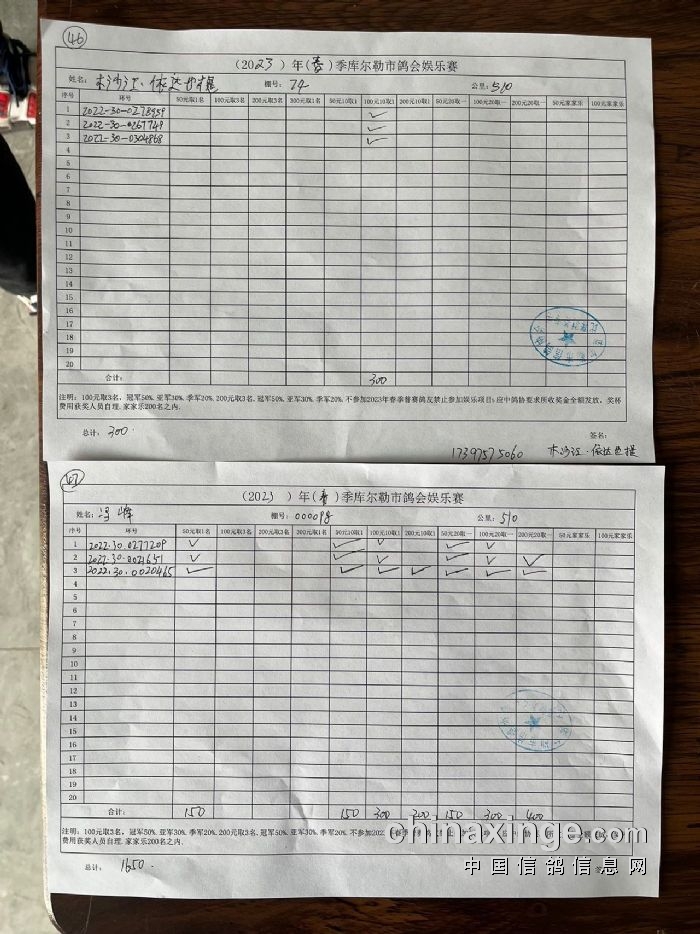 46
（2023）年（春）季库尔勒市鸽会娱乐赛
姓名：木沙江·依达也提 棚号：74 公里：510
序号 环号 50元取1名 100元取3名 200元取3名 300元取1名 50元10取1 100元10取1 200元10取1 50元20取一 100元20取一 200元20取一 50元家家乐 100元家家乐
1 2022-30-0278959 ✓
2 2022-30-0267749 ✓
3 2022-30-0304868 ✓
4
5
6
7
8
9
10
11
12
13
14
15
16
17
18
19
20
合计： 300
注明：100元取3名，冠军50%，亚军30%，季军20%，200元取3名，冠军50%，亚军30%，季军20%，不参加2023年春季普赛鸽友禁止参加娱乐项目；应中鸽协要求所收奖金全额发放，奖杯
费用获奖人员自理，家家乐200名之内。
总计：300. 签名：
17397575060 木沙江·依达也提
47
（2023）年（春）季库尔勒市鸽会娱乐赛
姓名：冯峰 棚号：000098 公里：510
序号 环号 50元取1名 100元取3名 200元取3名 300元取1名 50元10取1 100元10取1 200元10取1 50元20取一 100元20取一 200元20取一 50元家家乐 100元家家乐
1 2022.30.0277209 ✓ ✓ ✓ ✓ ✓
2 2022.30.0021651 ✓ ✓ ✓ ✓ ✓ ✓
3 2022.30.0020465 ✓ ✓ ✓ ✓ ✓ ✓ ✓
4
5
6
7
8
9
10
11
12
13
14
15
16
17
18
19
20
合计： 150 150 300 200 150 300 400
注明：100元取3名，冠军50%，亚军30%，季军20%，200元取3名，冠军50%，亚军30%，季军20%，不参加202
费用获奖人员自理，家家乐200名之内。
chinaxinge.com
总计：1650.
中国信鸽信息网